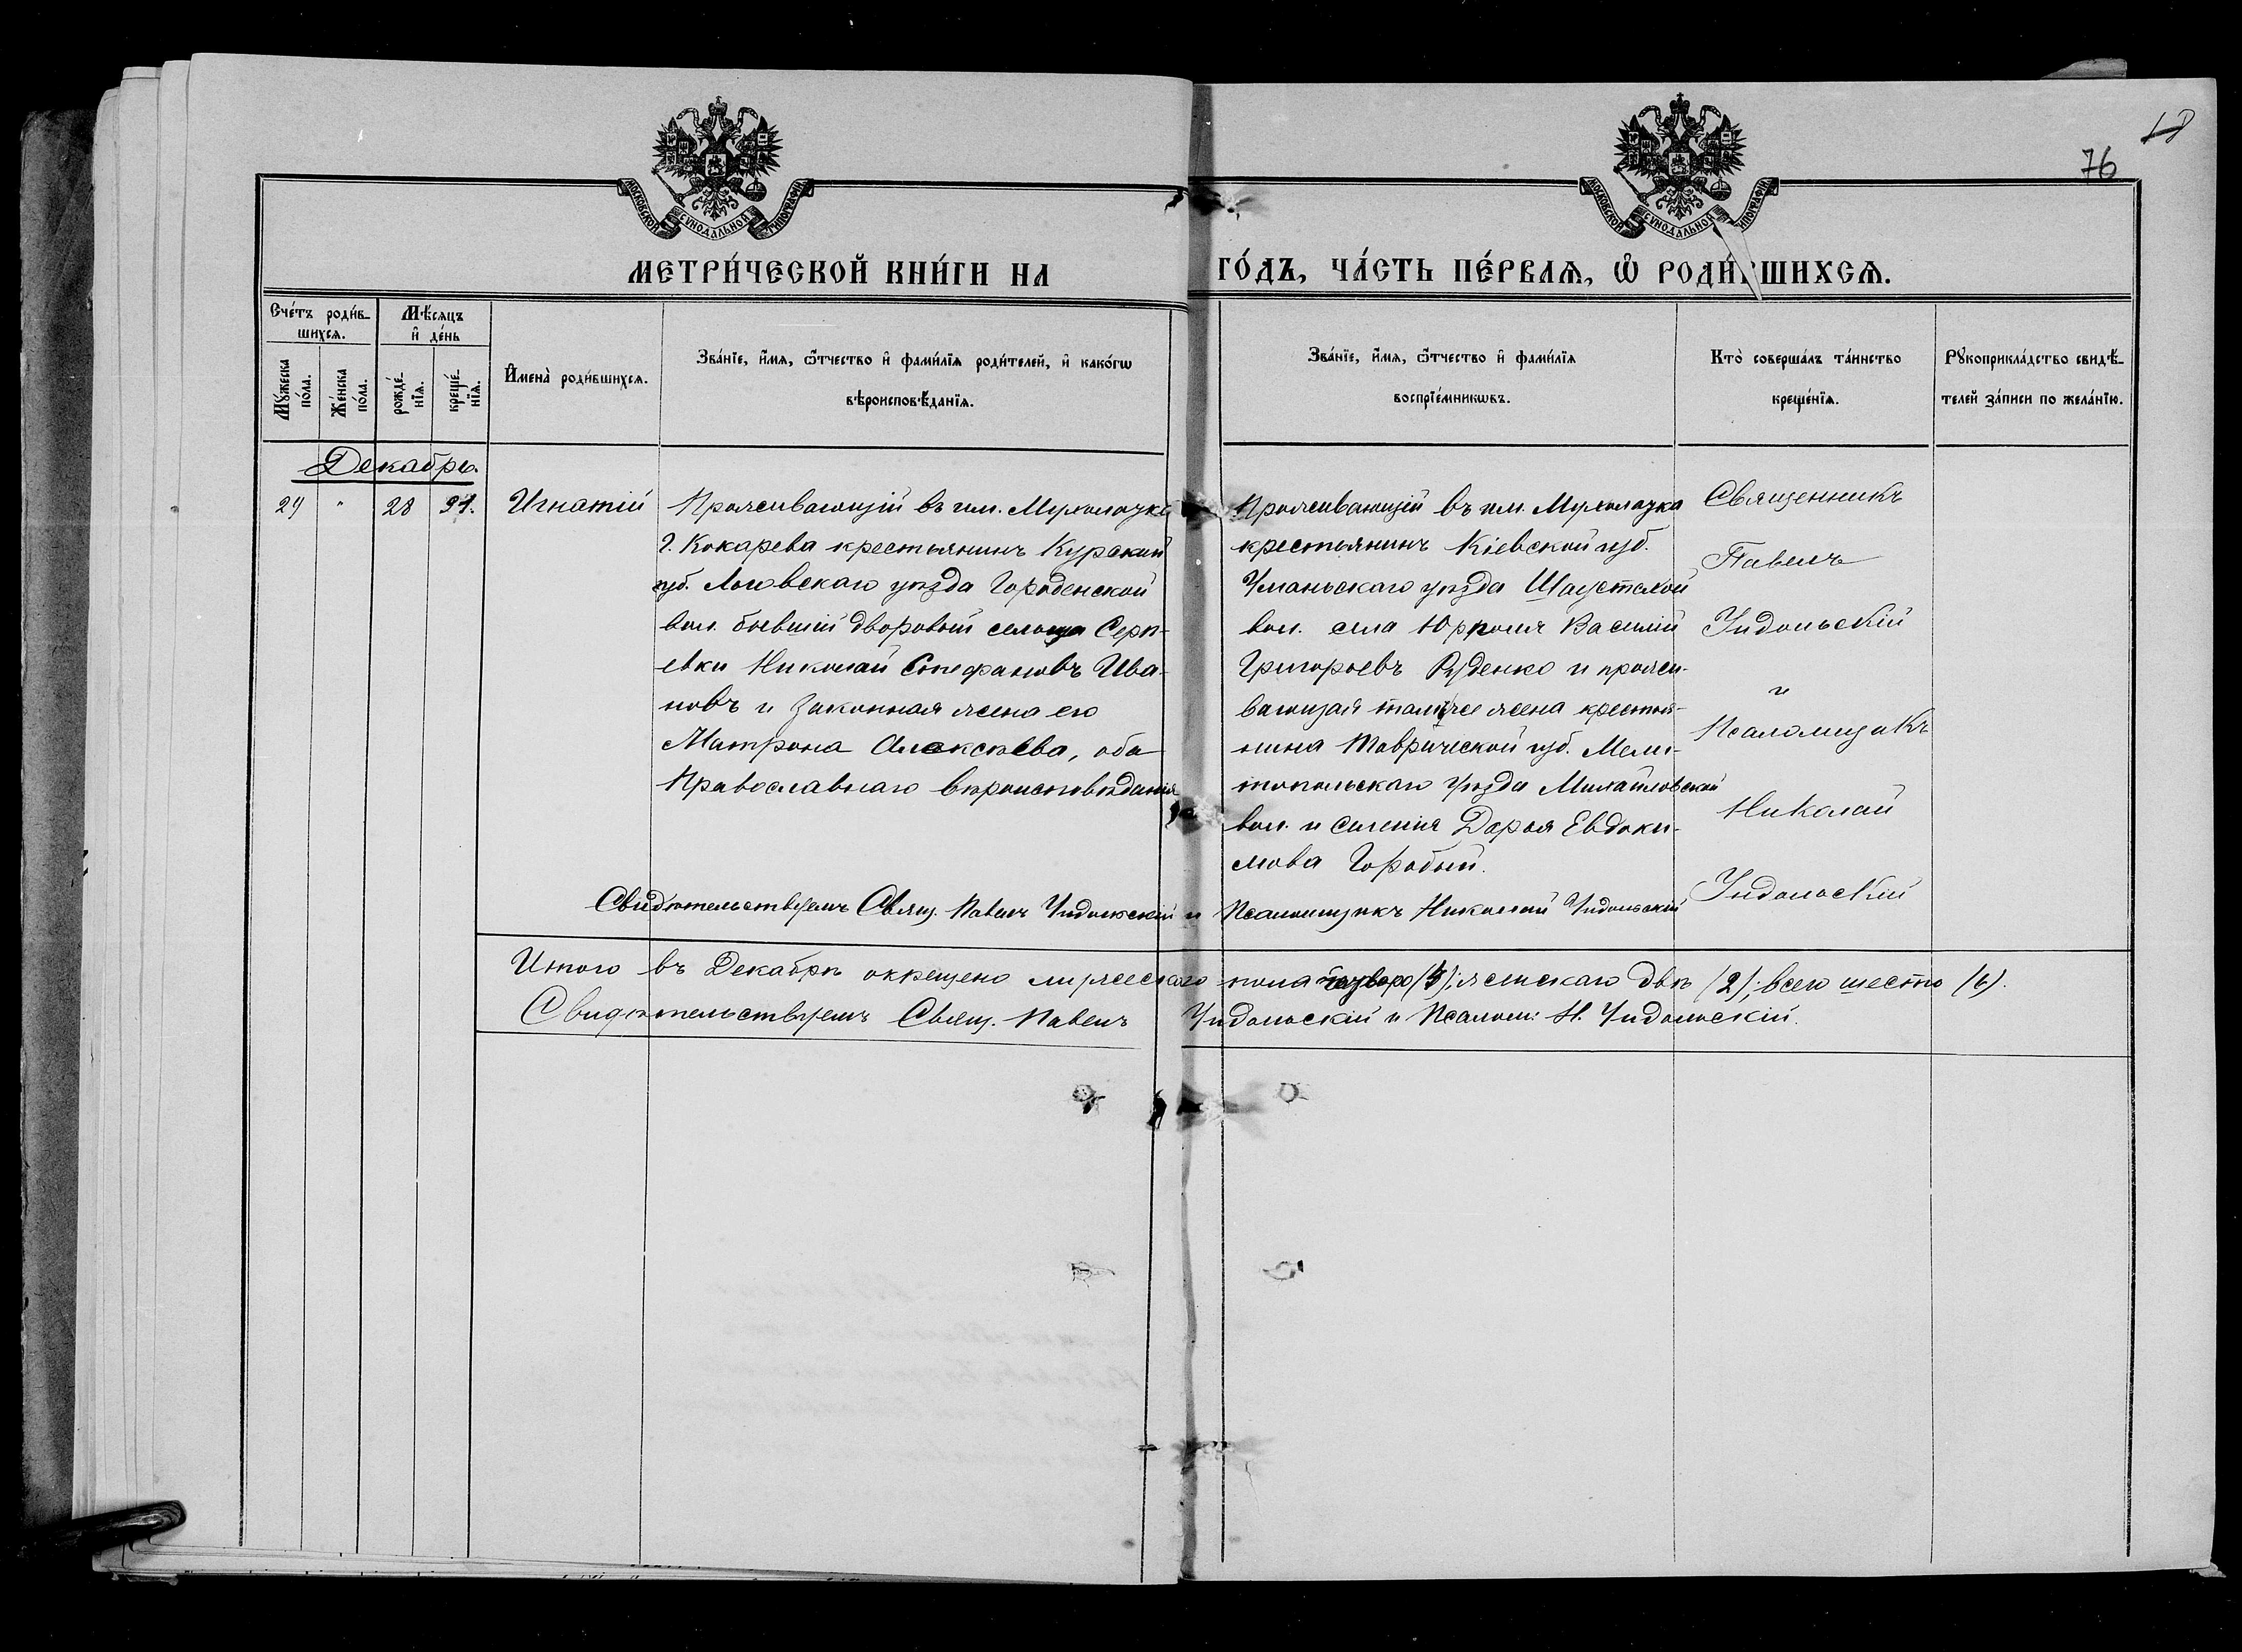 18
76
МОСКОВСКОЙ СУНОДАЛЬНОЙ ТИПОГРАФІИ
МОСКОВСКОЙ СУНОДАЛЬНОЙ ТИПОГРАФІИ
МЕТРИ́ЧЕСКОЙ КНИ́ГИ НА ГО́ДЪ, ЧА́СТЬ ПЕ́РВАѦ, Ѡ҆ РОДИ́ВШИХСѦ.
Сче́тъ роди́в-
шихсѧ.
Мѣ́сѧцъ
и҆ де́нь
Мꙋ́жеска
по́ла.
Же́нска
по́ла.
рожде́-
нїѧ.
креще́-
нїѧ.
И҆мена̀ роди́вшихсѧ.
Зва́нїе, и҆́мѧ, ѻ҆́тчество и҆ фами́лїѧ роди́телей, и҆ како́гѡ
вѣроисповѣ́данїѧ.
Зва́нїе, и҆́мѧ, ѻ҆́тчество и҆ фами́лїѧ
воспрїе́мникѡвъ.
Кто̀ соверша́лъ та́инство
креще́нїѧ.
Рꙋкоприкла́дство свидѣ́-
телей за́писи по жела́нїю.
Декабрь.
24 " 28 31. Игнатій
Проживающій въ им. Мухолазка
Г. Кокарева крестьянинъ Курской
губ. Льговскаго уѣзда Городенской
вол. бывшій дворовый сельца Серп-
евки Николай Стефановъ Ива-
новъ и законная жена его
Матрона Алексѣева, оба
Православнаго вѣроисповѣданія
Проживающій въ им. Мухолазка
крестьянинъ Кіевской губ.
Уманьскаго уѣзда
вол. села Василій
Григорьевъ Руденко и прожи-
вающая также жена крестья-
нина Таврической губ. Мели-
топольскаго уѣзда Михайловской
вол. и селенія Дарья Евдоки-
мова Горобый.
Священникъ
Павелъ
Индольскій
и
Псаломщикъ
Николай
Индольскій
Свидѣтельствуемъ Свящ. Павелъ Индольскій и Псаломщикъ Николай Индольскій
Итого въ Декабрѣ окрещено мужескаго пола четверо (4); женскаго двѣ (2); всего шесть (6).
Свидѣтельствуемъ Свящ. Павелъ Индольскій и Псалом: Н. Индольскій.